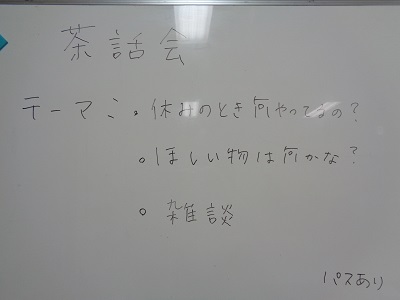 茶話会
テーマ:。休みのとき何やってるの?
。ほしい物は何かな?
。雑談
パスあり